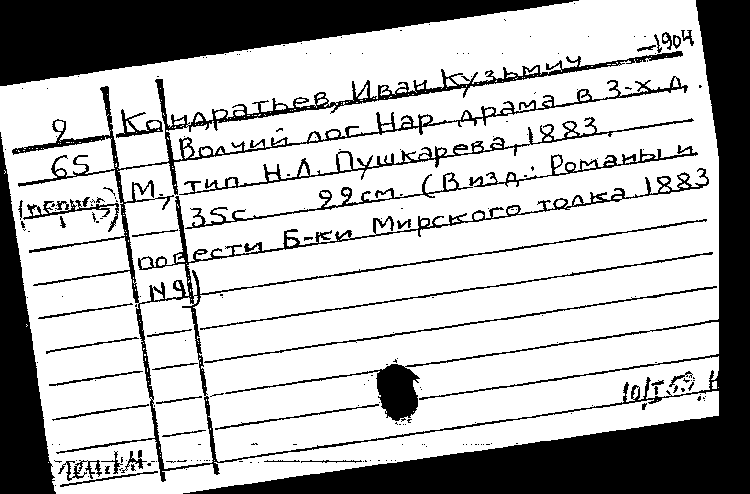 –1904
Кондратьев, Иван Кузьмич
2
Волчий лог. Нар. драма в 3-х д.
65
М., тип. Н.Л. Пушкарева, 1883.
35с. 22см. (В изд.: Романы и
повести Б-ки Мирского толка 1883
N9)
10/I 59